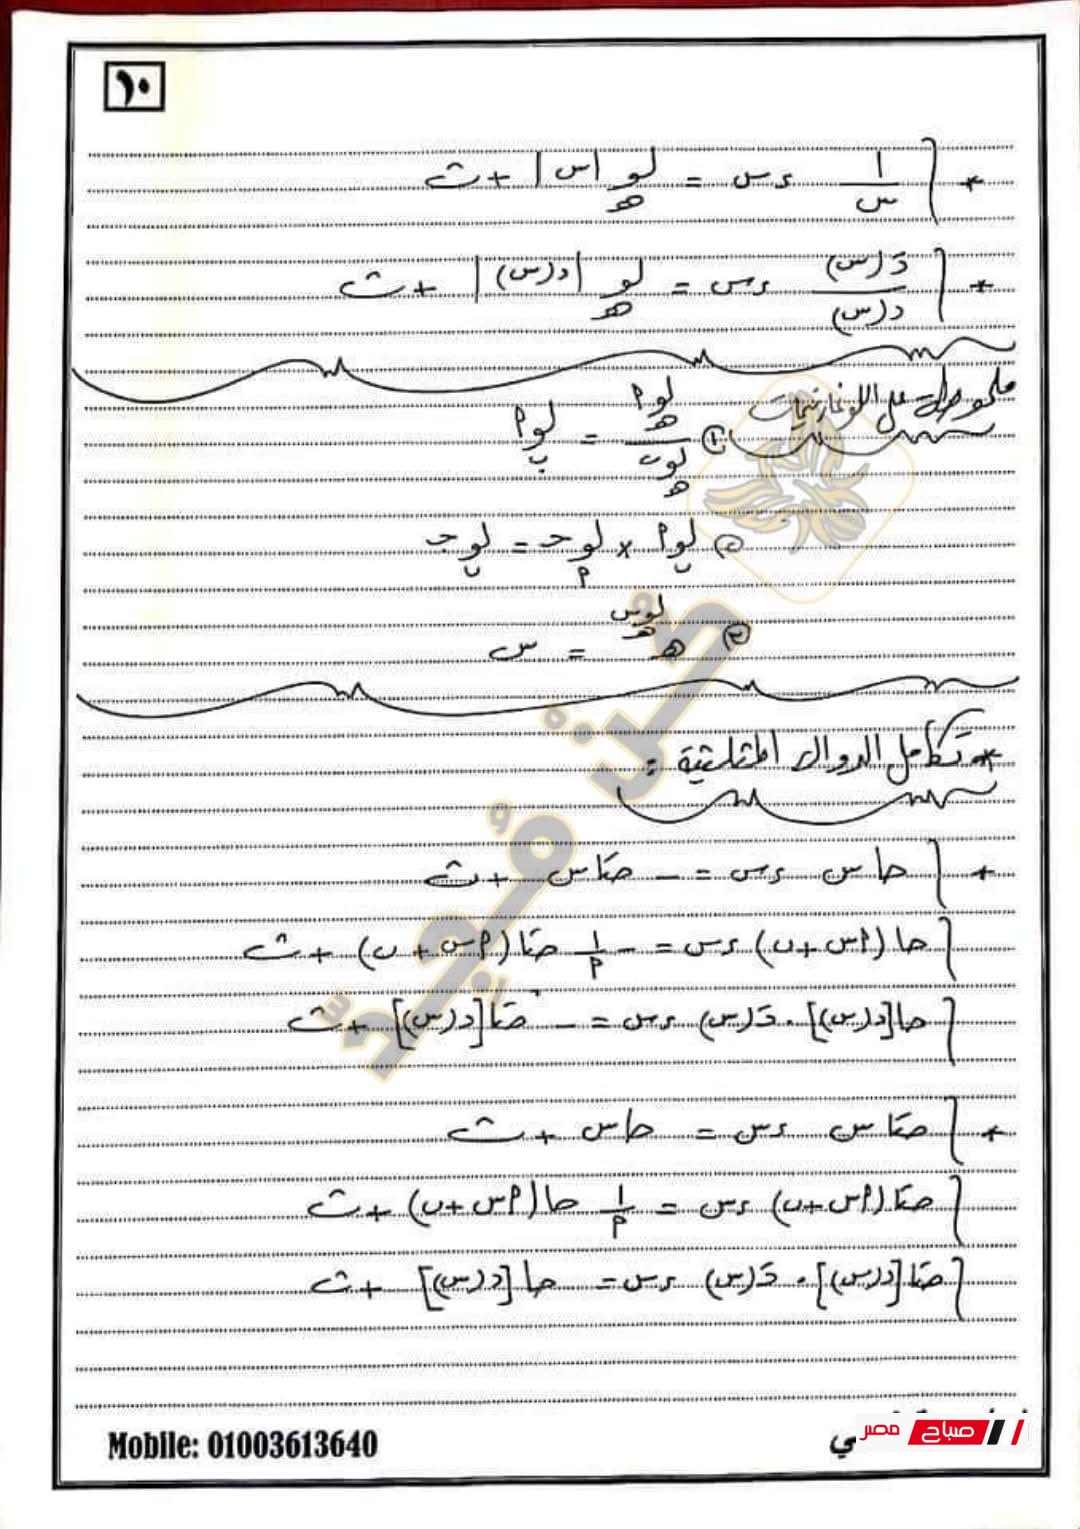 ١٠
* ∫ ١/س ءس = لو_هـ |س| + ث
* ∫ دَ(س)/د(س) ءس = لو_هـ |د(س)| + ث
ملحوظات على اللوغاريتمات
① لو_هـ م / لو_هـ ب = لو_ب م
② لو_ب م × لو_م جـ = لو_ب جـ
③ هـ^(لو_هـ س) = س
* تكامل الدوال المثلثية :
* ∫ حاس ءس = - حتاس + ث
∫ حا(م س + ب) ءس = - ١/م حتا(م س + ب) + ث
∫ حا[د(س)] . دَ(س) ءس = - حتا[د(س)] + ث
* ∫ حتاس ءس = حاس + ث
∫ حتا(م س + ب) ءس = ١/م حا(م س + ب) + ث
∫ حتا[د(س)] . دَ(س) ءس = حا[د(س)] + ث
صباح مصر
Mobile: 01003613640